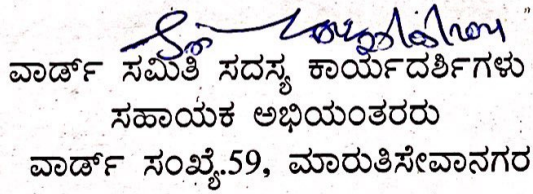 ವಾರ್ಡ್ ಸಮಿತಿ ಸದಸ್ಯ ಕಾರ್ಯದರ್ಶಿಗಳು
ಸಹಾಯಕ ಅಭಿಯಂತರರು
ವಾರ್ಡ್ ಸಂಖ್ಯೆ.59, ಮಾರುತಿಸೇವಾನಗರ